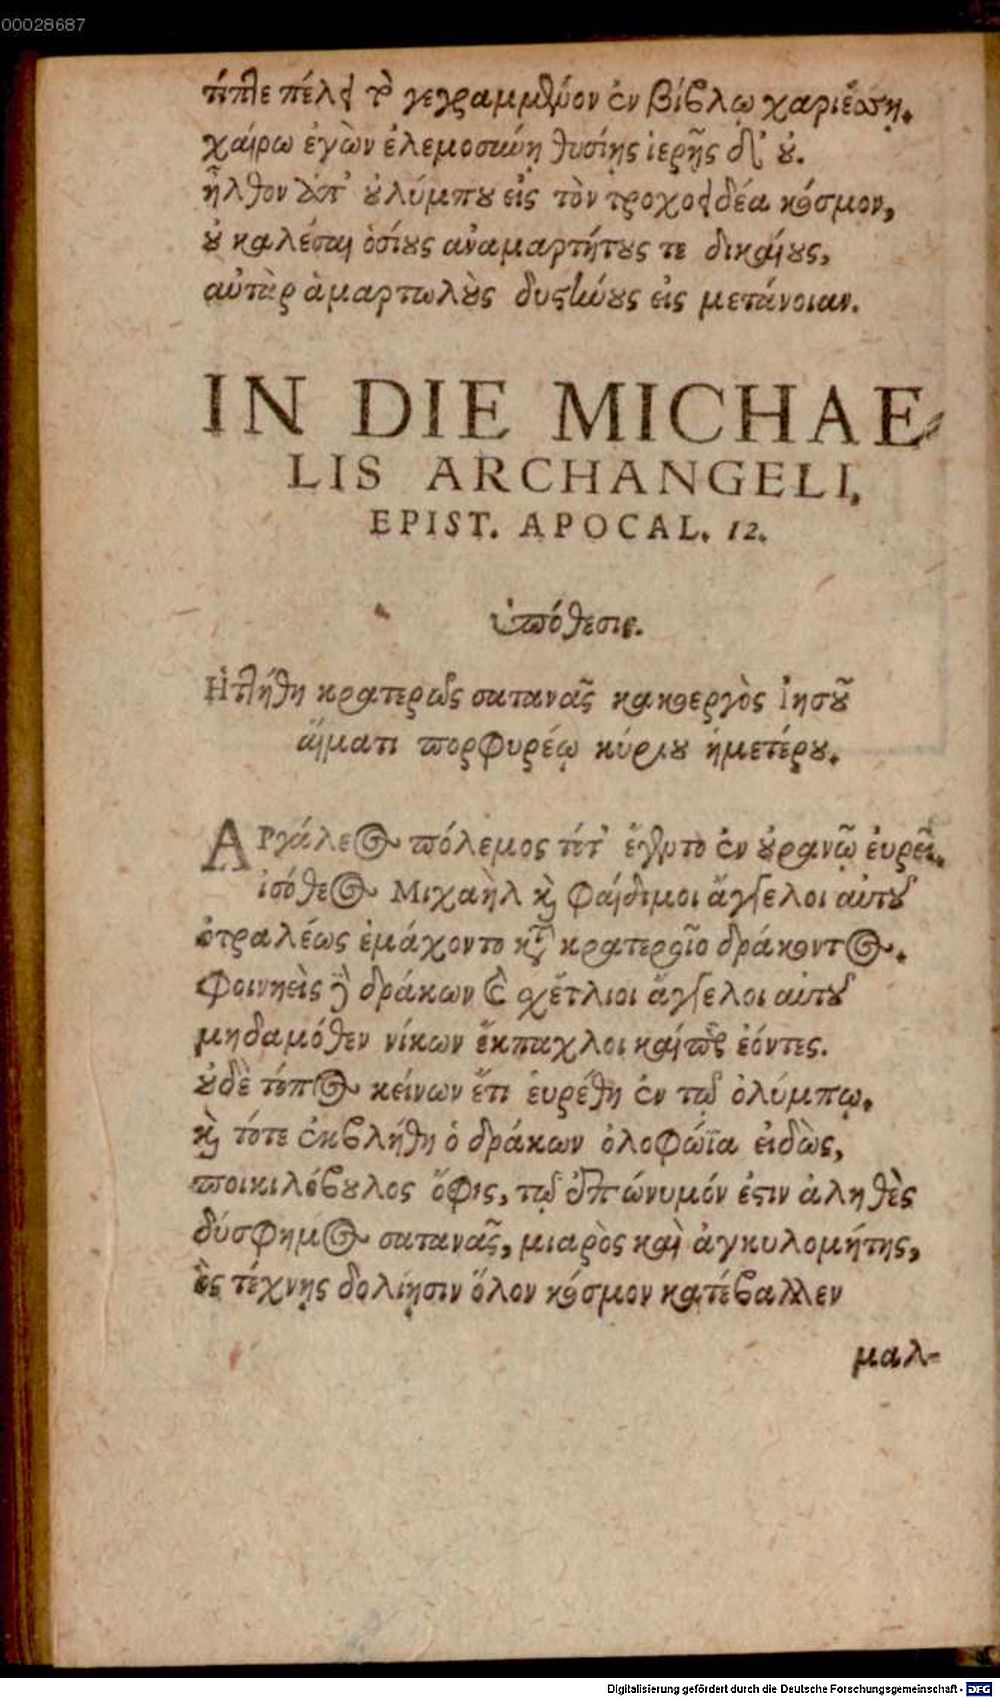 00028687
τίπτε πέλει τὸ γεγραμμένον ἐν βίβλῳ χαριέσσῃ.
χαίρω ἐγὼν ἐλεμοσύνῃ θυσίης ἱερῆς δ' οὐ.
ἦλθον ἀπ' οὐλύμπου εἰς τὸν τροχοειδέα κόσμον,
οὐ καλέσαι ὁσίους ἀναμαρτήτους τε δικαίους,
αὐτὰρ ἁμαρτωλοὺς δυστήνους εἰς μετάνοιαν.
IN DIE MICHAE-
LIS ARCHANGELI,
EPIST. APOCAL. 12.
ὑπόθεσις.
Ἡττήθη κρατερῶς σατανᾶς κακοεργὸς Ἰησοῦ
αἵματι πορφυρέῳ κύρου ἡμετέρου.
ΑΡγάλεος πόλεμος τότ' ἐγένετο ἐν οὐρανῷ εὐρεῖ.
ἰσόθεος Μιχαὴλ καὶ φαίδιμοι ἄγγελοι αὐτοῦ
ὀτραλέως ἐμάχοντο κατὰ κρατεροῖο δράκοντος.
Φοινήεις δὲ δράκων καὶ σχέτλιοι ἄγγελοι αὐτοῦ
μηδαμόθεν νίκων ἔκπαγλοι καίπερ ἐόντες.
οὐδὲ τόπος κείνων ἔτι εὑρέθη ἐν τῷ ὀλύμπῳ.
καὶ τότε ἐκβλήθη ὁ δράκων ὀλοφώϊα εἰδὼς,
ποικιλόβουλος ὄφις, τῷ ἐπώνυμόν ἐστιν ἀληθὲς
δύσφημος σατανᾶς, μιαρὸς καὶ ἀγκυλομήτης,
ὃς τέχνῃς δολίῃσιν ὅλον κόσμον κατέβαλλεν
μαλ-
Digitalisierung gefördert durch die Deutsche Forschungsgemeinschaft - DFG